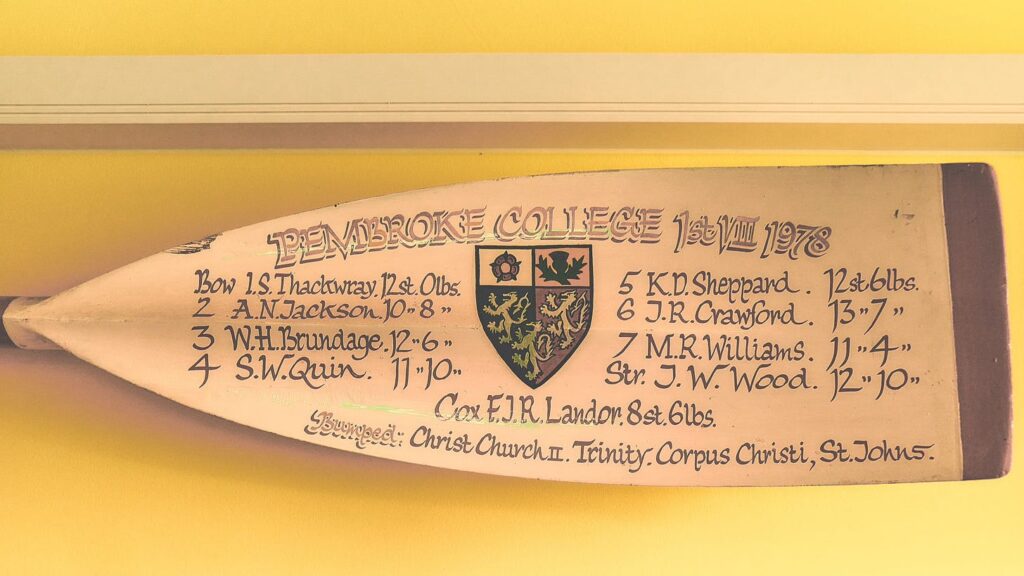 PEMBROKE COLLEGE 1st VIII 1978
Bow I.S. Thackwray. 12st. 0lbs.
2 A.N. Jackson. 10 " 8 "
3 W.H. Brundage. 12 " 6 "
4 S.W. Quin. 11 " 10 "
5 K.D. Sheppard. 12st 6lbs.
6 J.R. Crawford. 13 " 7 "
7 M.R. Williams. 11 " 4 "
Str. J.W. Wood. 12 " 10 "
Cox F.J.R. Landor. 8st. 6lbs.
Bumped: Christ Church II. Trinity. Corpus Christi, St. Johns.